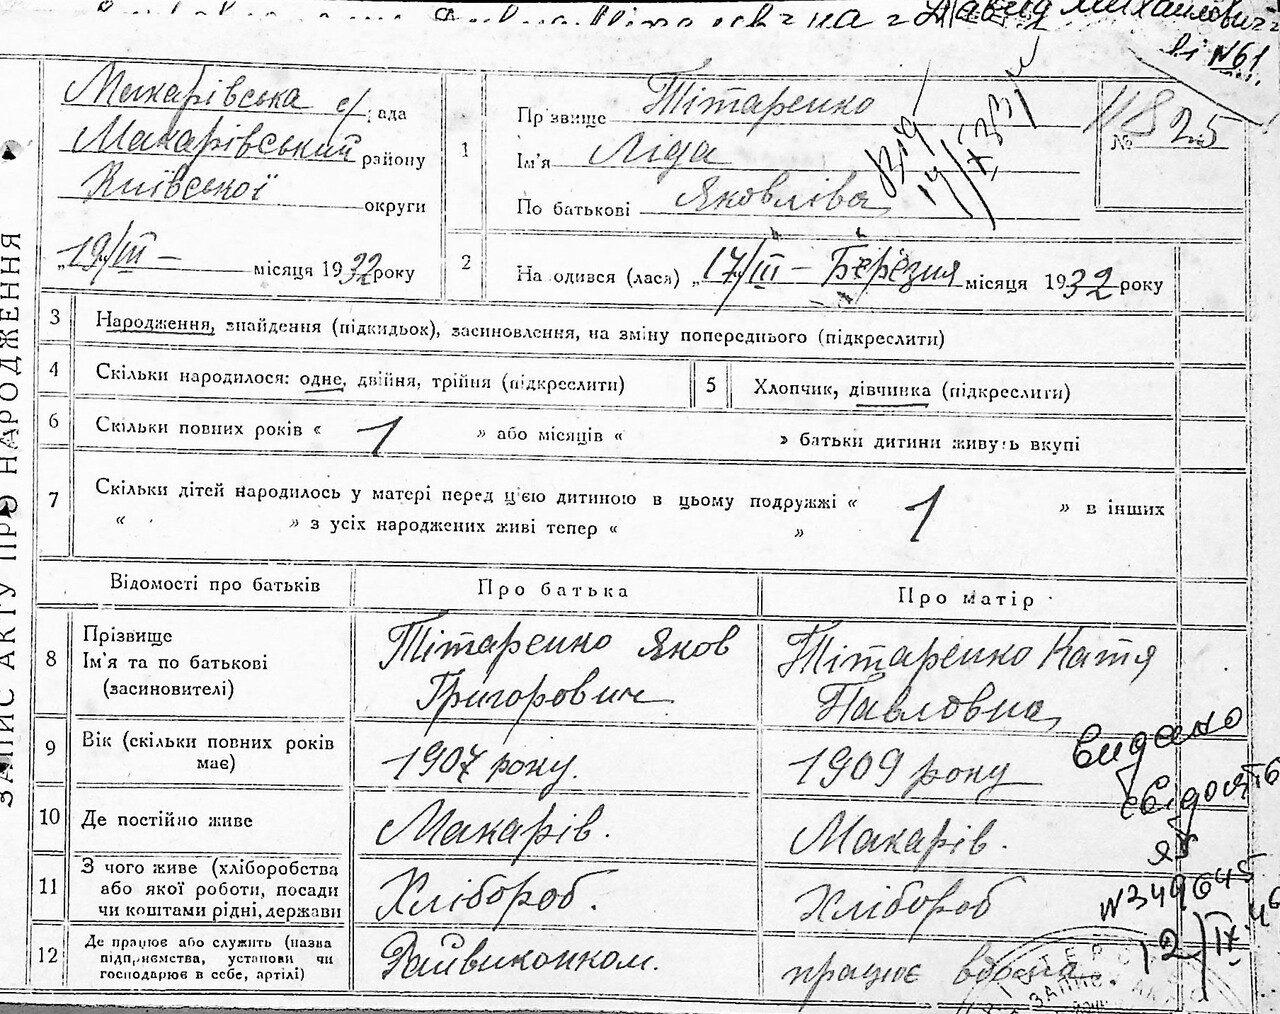 Давид Михайлович
ві №61
ЗАПИС АКТУ ПРО НАРОДЖЕННЯ
Макарівська с/рада
Макарівський району
Київської округи
„19/III — місяця 1932 року
1
Прізвище Тітаренко
Ім'я Ліда
По батькові Яковліва
від
19/IX 33 р
№ 25
2
Народився (лася) „17/III — Березня місяця 1932 року
3 Народження, знайдення (підкидьок), засиновлення, на зміну попереднього (підкреслити)
4 Скільки народилося: одне, двійня, трійня (підкреслити)
5 Хлопчик, дівчинка (підкреслити)
6 Скільки повних років « 1 » або місяців « » батьки дитини живуть вкупі
7 Скільки дітей народилось у матері перед ц'єю дитиною в цьому подружжі « 1 » в інших
« » з усіх народжених живі тепер « »
Відомості про батьків Про батька Про матір
8 Прізвище
Ім'я та по батькові
(засиновителі)
Тітаренко Яков
Григорович
Тітаренко Катя
Павловна
9 Вік (скільки повних років
має)
1907 року.
1909 року
10 Де постійно живе Макарів. Макарів.
11 З чого живе (хліборобства
або якої роботи, посади
чи коштами рідні, держави
Хлібороб.
Хлібороб
12 Де працює або служить (назва
підприємства, установи чи
господарює в себе, артілі)
Райвиконком.
працює вдома
видано
свідоцтво
ЯБ
№349645
12/IX 46